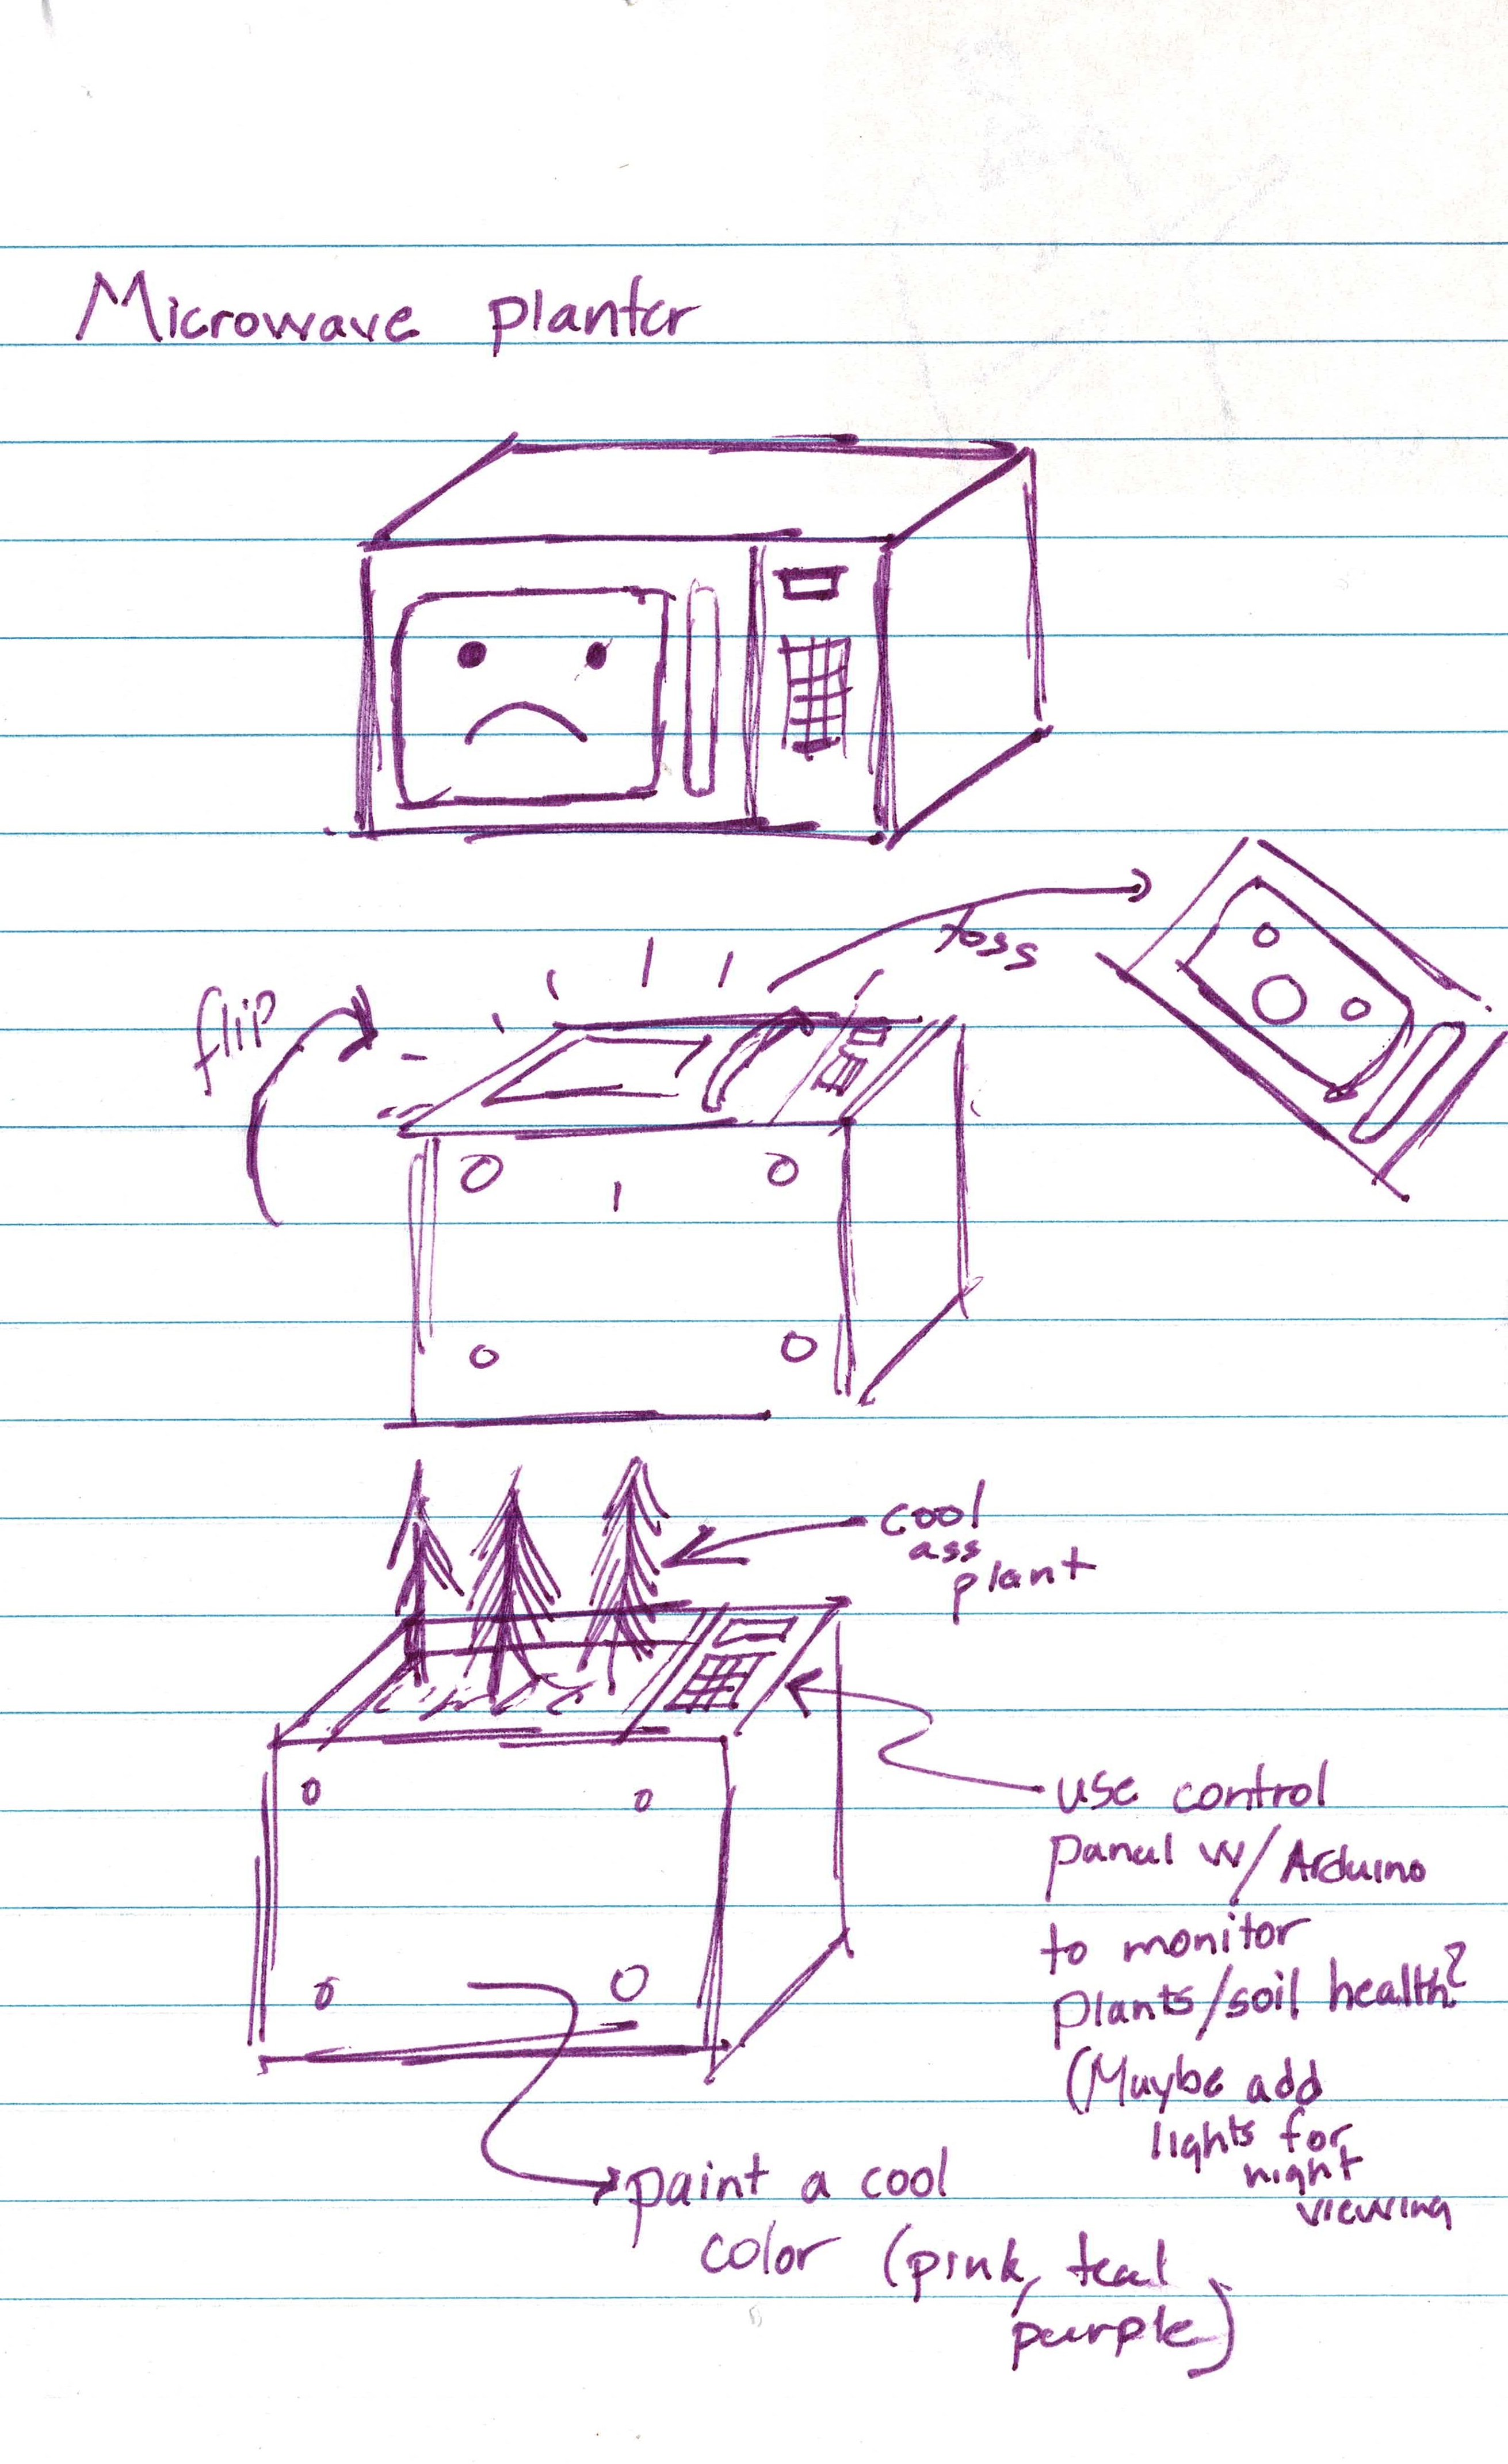 Microwave planter
toss
flip
cool
ass
plant
use control
panal w/ Arduino
to monitor
plants/soil health?
(Maybe add
lights for
night
viewing
paint a cool
color (pink, teal,
purple)